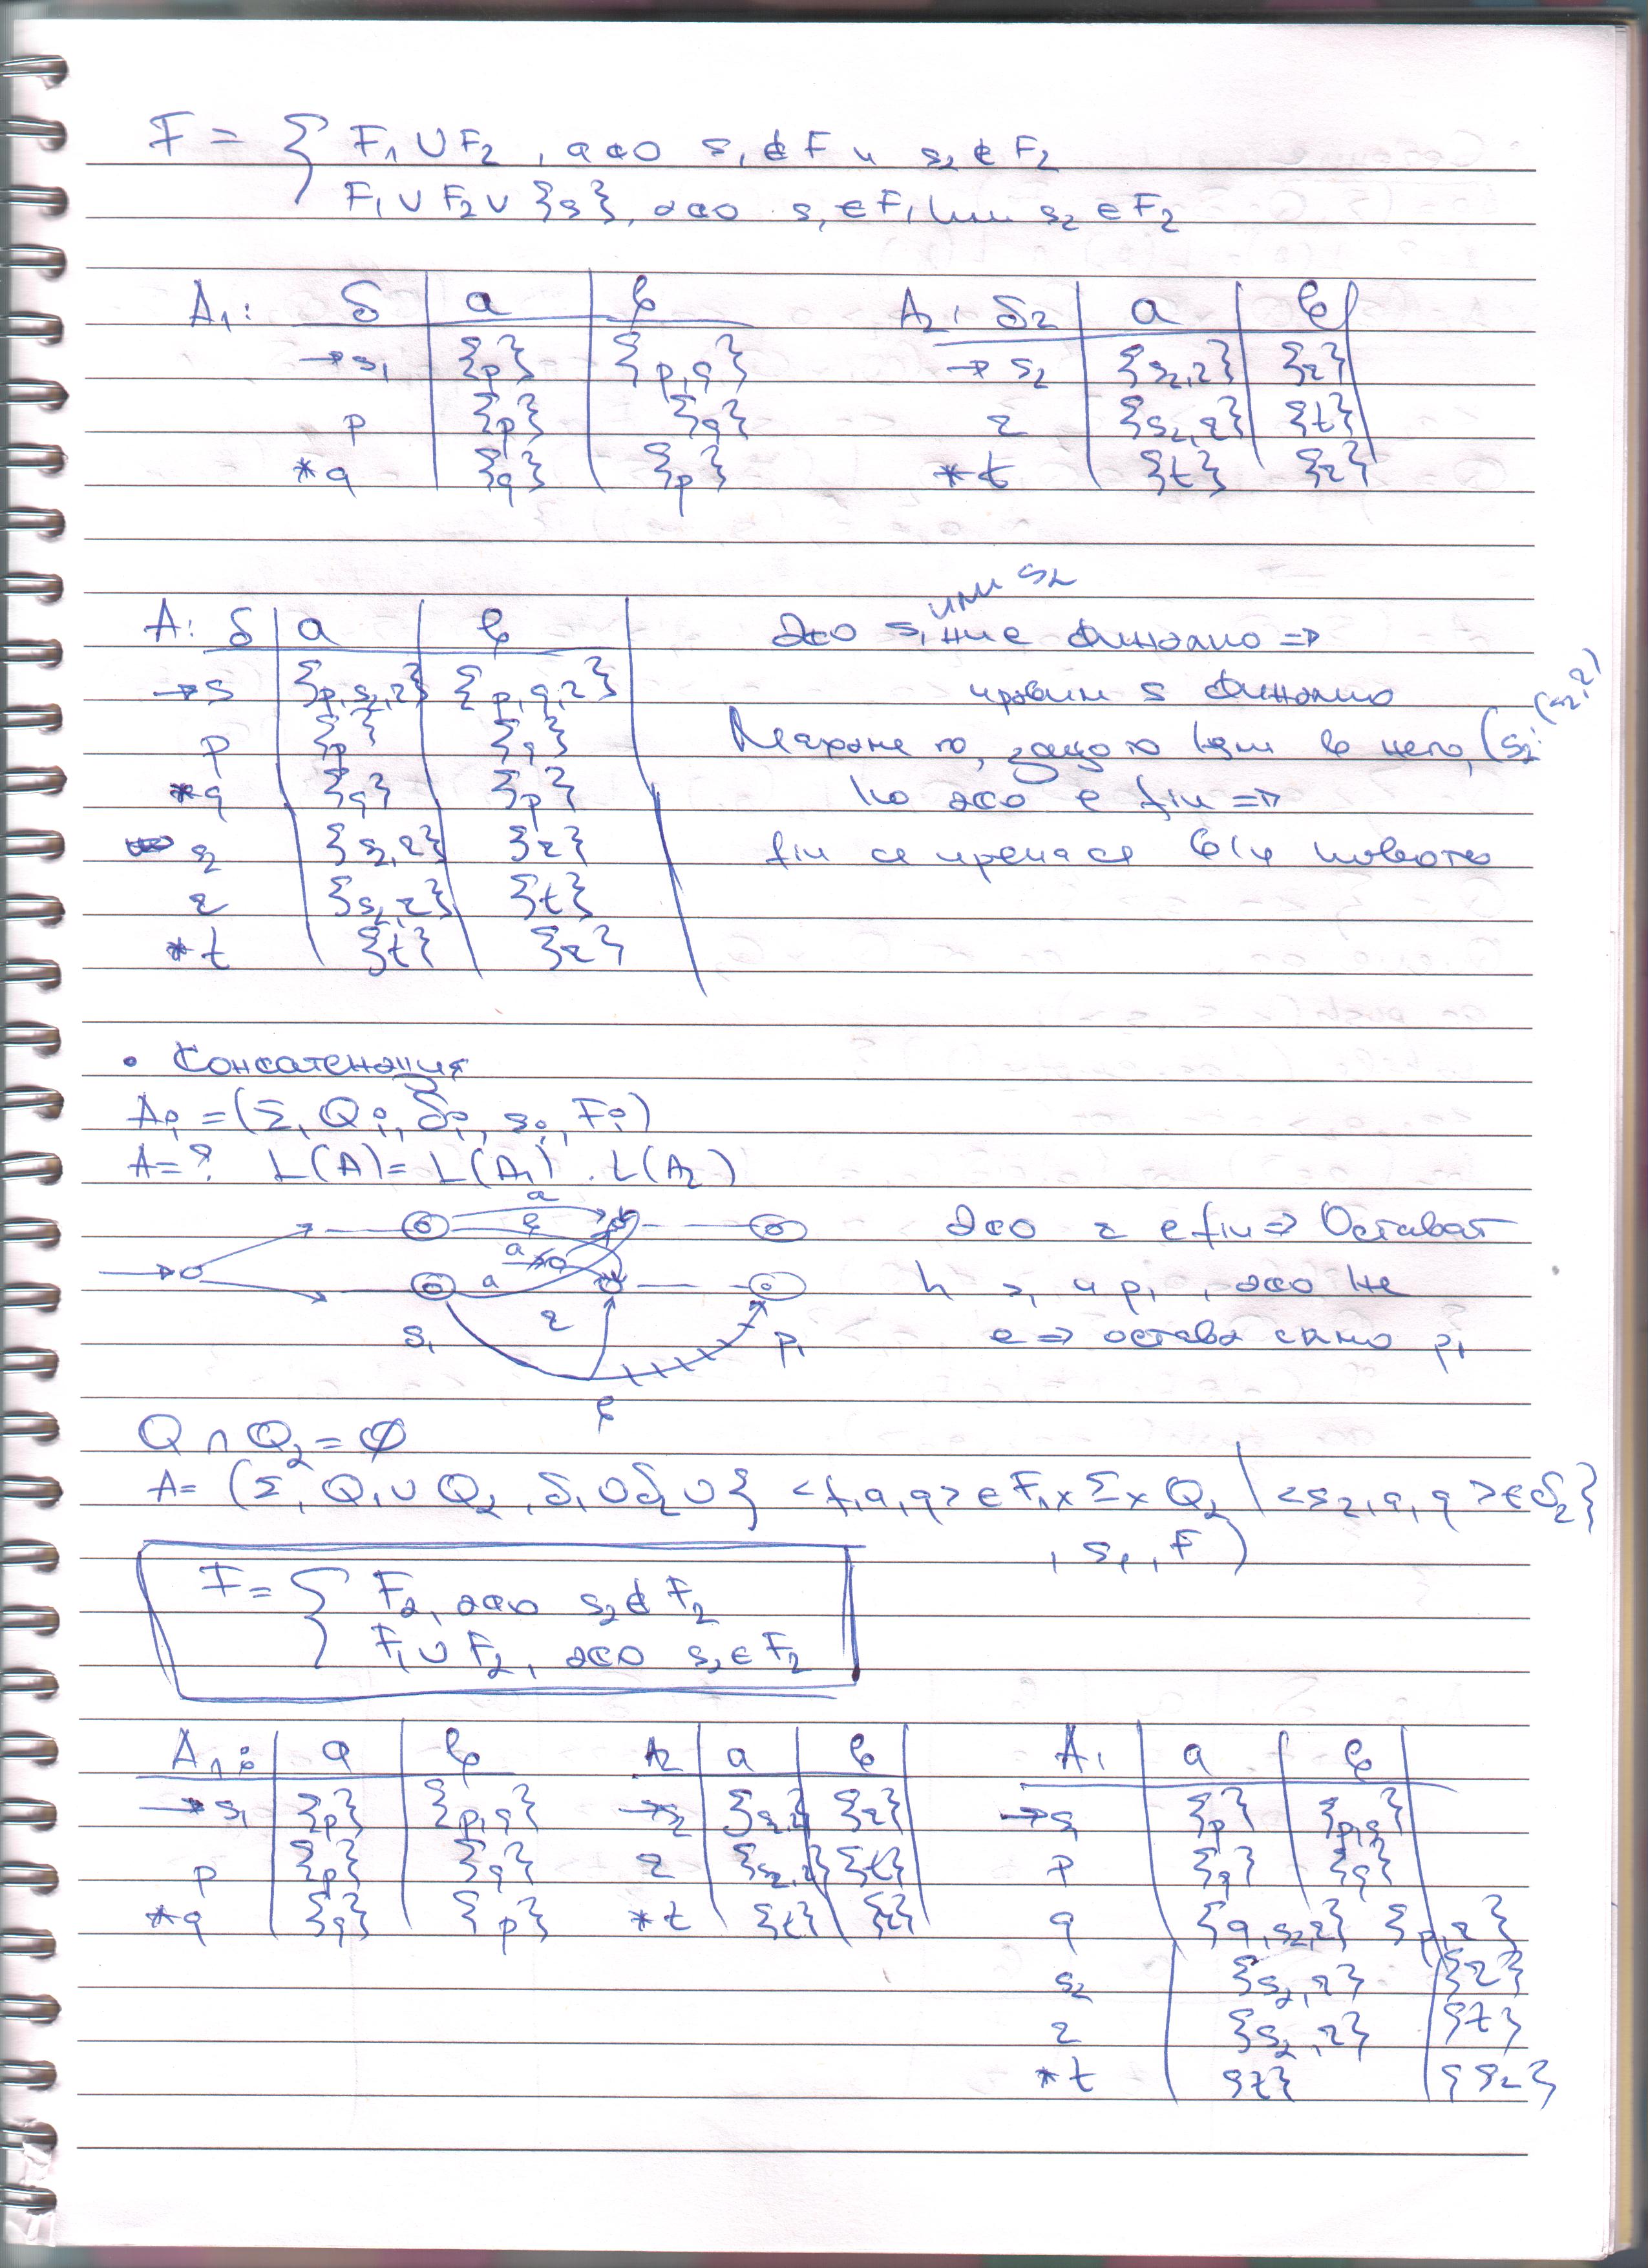 F = { F₁ ∪ F₂ , ако s₁ ∉ F и s₂ ∉ F₂
F₁ ∪ F₂ ∪ {s}, ако s₁ ∈ F₁ или s₂ ∈ F₂
A₁: δ | a | b
→s₁ | {p} | {p,q}
p | {p} | {q}
*q | {q} | {p}
A₂: δ₂ | a | b
→ s₂ | {s₂,r} | {r}
r | {s₂,r} | {t}
*t | {t} | {r}
A: δ | a | b
→s | {p,s₂,r} | {p,q,r}
p | {p} | {q}
*q | {q} | {p}
s₂ | {s₂,r} | {r}
r | {s₂,r} | {t}
*t | {t} | {r}
Ако s₁ или s₂ финално ⇒
правим s финално
Махаме го, защото в него, (s₂: (s₂,r)
но ако е fin ⇒
fin се пренася в новото
• Конкатенация
Aᵢ = (Σ, Qᵢ, δᵢ, sᵢ, Fᵢ)
A = ? L(A) = L(A₁) . L(A₂)
a
b
a
a
s₁ r p₁
b
Ако r е fin ⇒ Остават
и p₁, ако не
е ⇒ остава само p₁
Q ∩ Q₂ = ∅
A = (Σ, Q₁ ∪ Q₂, δ₁ ∪ δ₂ ∪ { <f,a,q> ∈ F₁ x Σ x Q₂ | <s₂,a,q> ∈ δ₂}
, s₁, F)
F = { F₂, ако s₂ ∉ F₂
F₁ ∪ F₂, ако s₂ ∈ F₂
A₁: | a | b
→s₁ | {p} | {p,q}
p | {p} | {q}
*q | {q} | {p}
A₂ | a | b
→s₂ | {s₂,r} | {r}
r | {s₂,r} | {t}
*t | {t} | {r}
A: | a | b
→s₁ | {p} | {p,q}
p | {q} | {q}
q | {q,s₂,r} | {p,r}
s₂ | {s₂,r} | {r}
r | {s₂,r} | {t}
*t | {t} | {s₂}